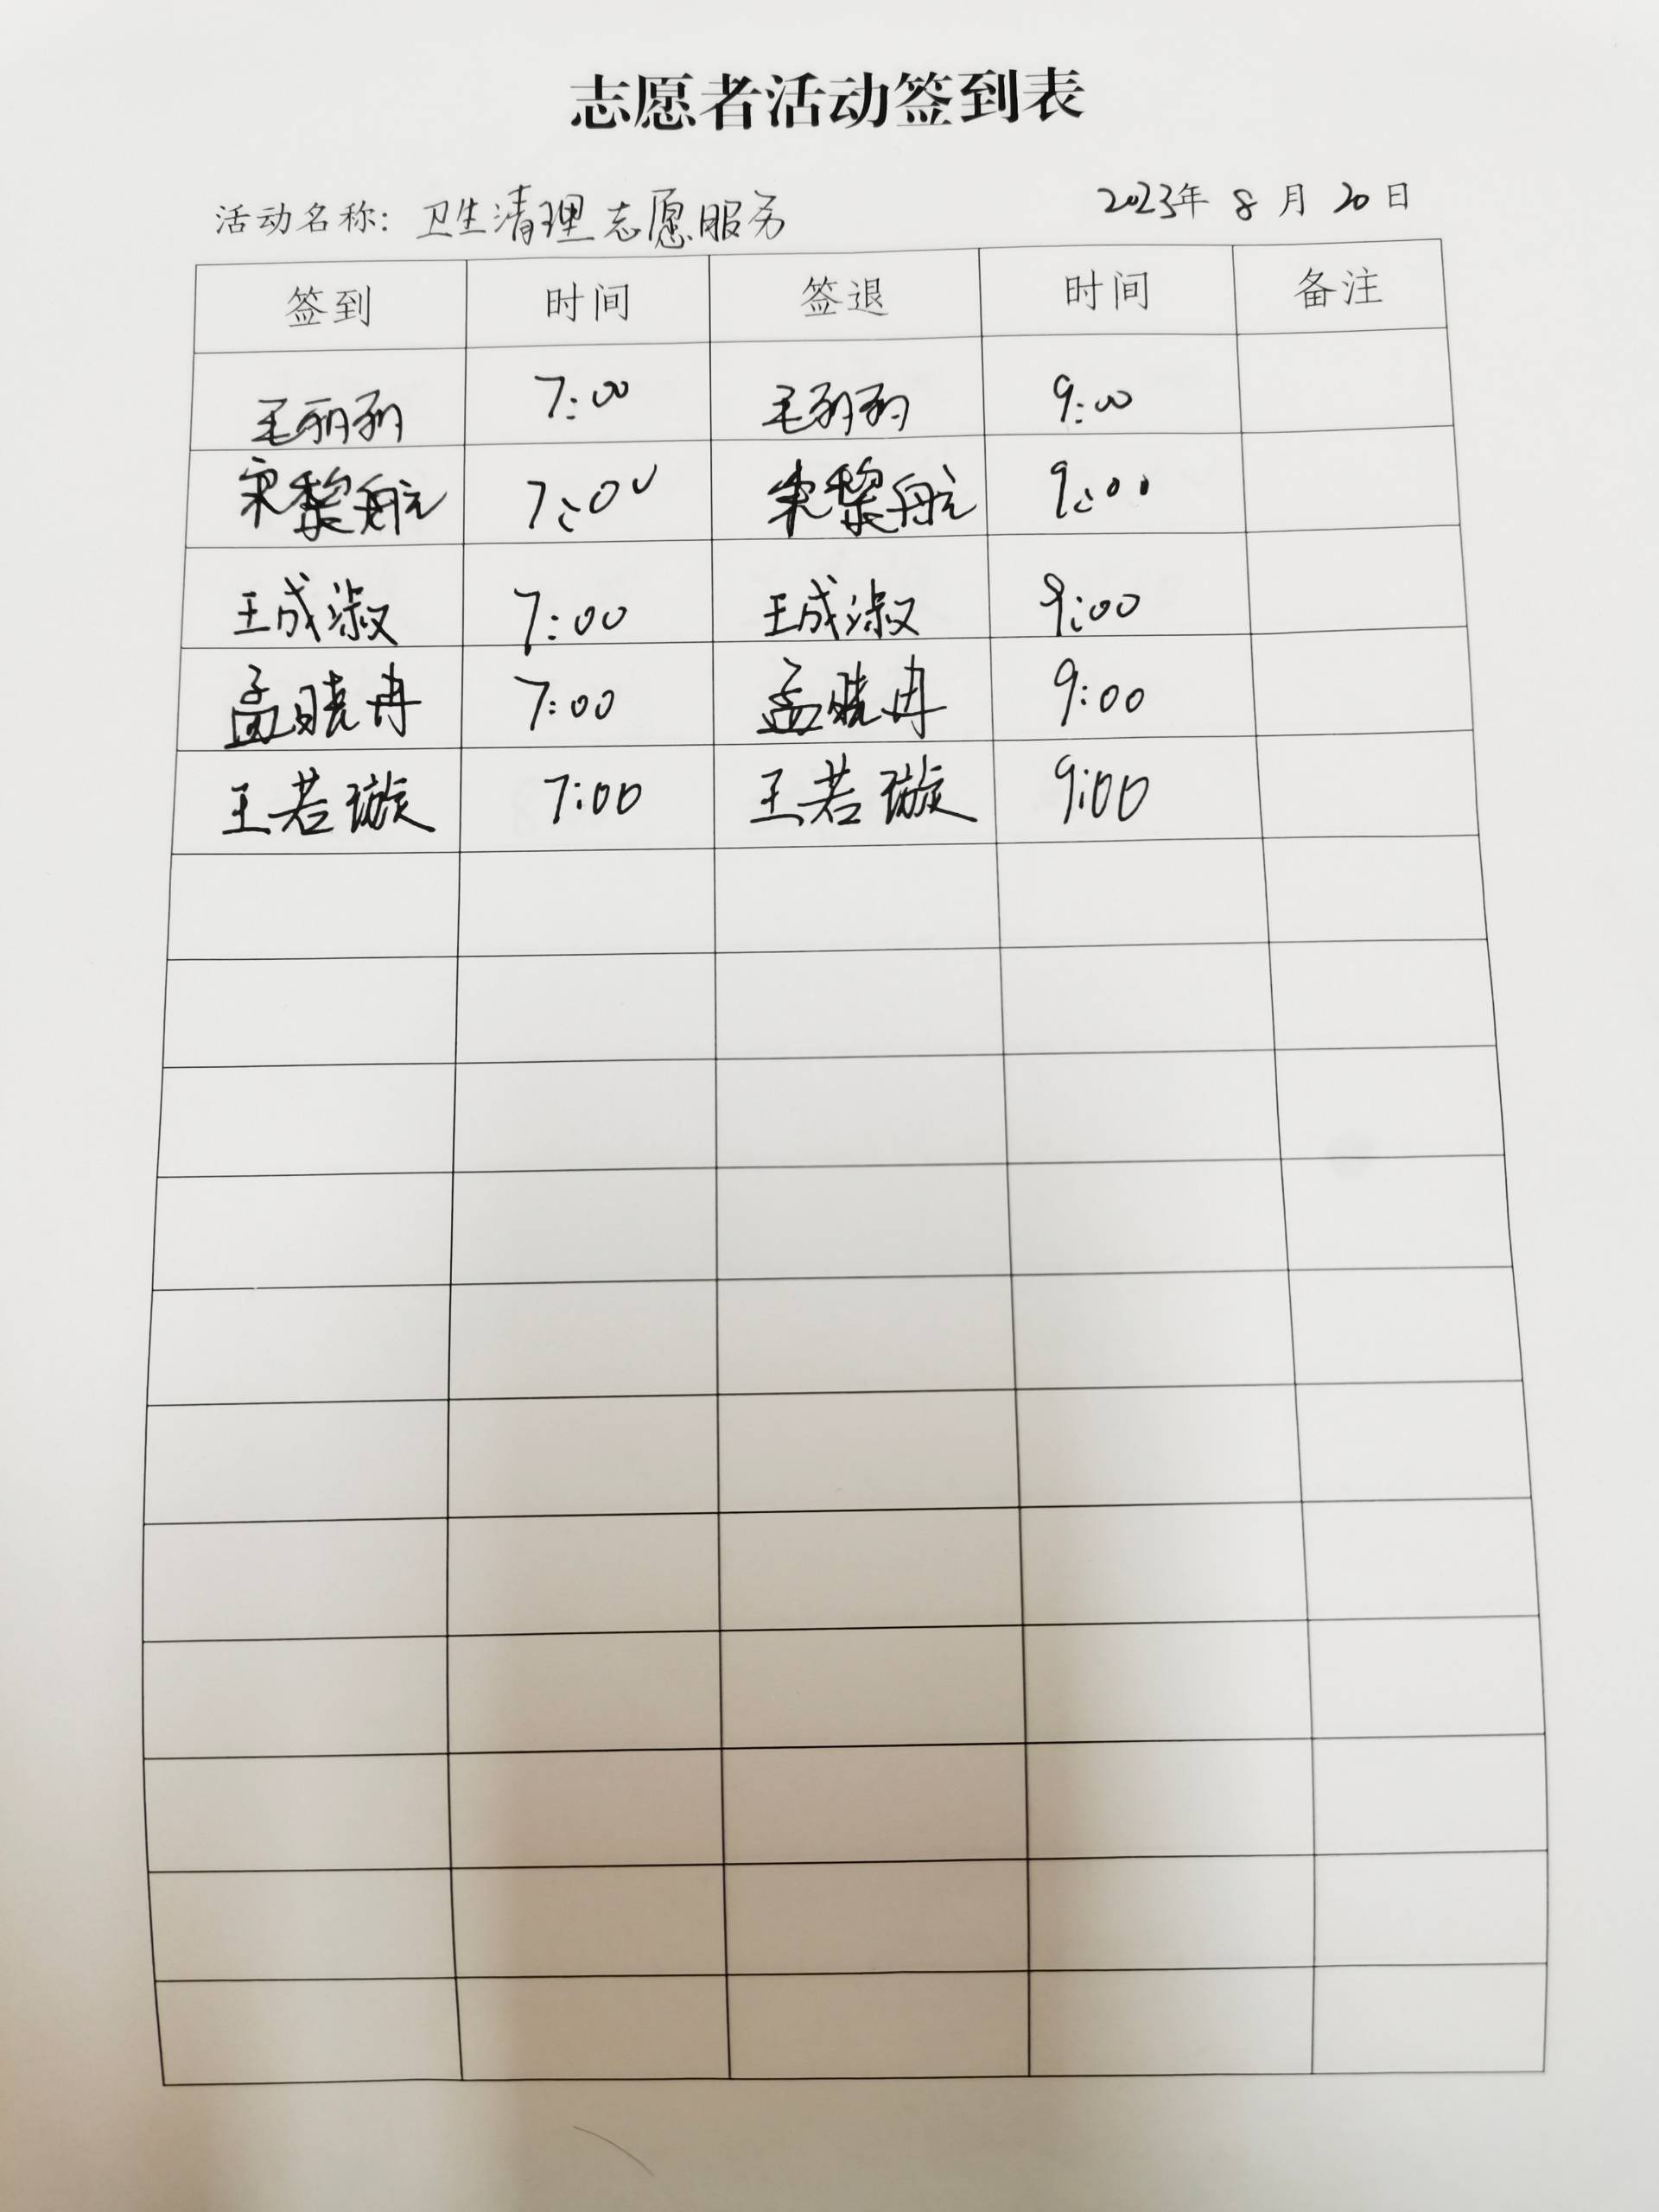 志愿者活动签到表
活动名称: 卫生清理志愿服务 2023年 8 月 20 日
签到 时间 签退 时间 备注
毛丽丽 7:00 毛丽丽 9:00
宋黎航 7:00 宋黎航 9:00
王成淑 7:00 王成淑 9:00
孟晓冉 7:00 孟晓冉 9:00
王若璇 7:00 王若璇 9:00